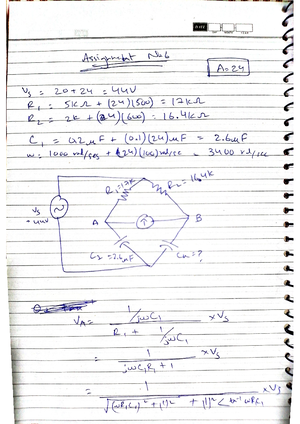 Assignment No 6
A=24
Vs = 20+24 = 44V
R1 = 5KΩ + (24)(500) = 17kΩ
R2 = 2k + (24)(600) = 16.4kΩ
C1 = 0.2μF + (0.1)(24)μF = 2.6μF
w= 1000 rad/sec + (24)(100)rad/sec = 3400 rad/sec
R1=17k
R2=16.4k
Vs
=44V
A
B
C2=2.6μF
Cu=?
VA= 1/jωC1 / R1 + 1/jωC1 × Vs
= 1 / jωC1R1 + 1 × Vs
= 1 / √(ωR1C1)² + (1)² < tan⁻¹ ωRC1 × Vs